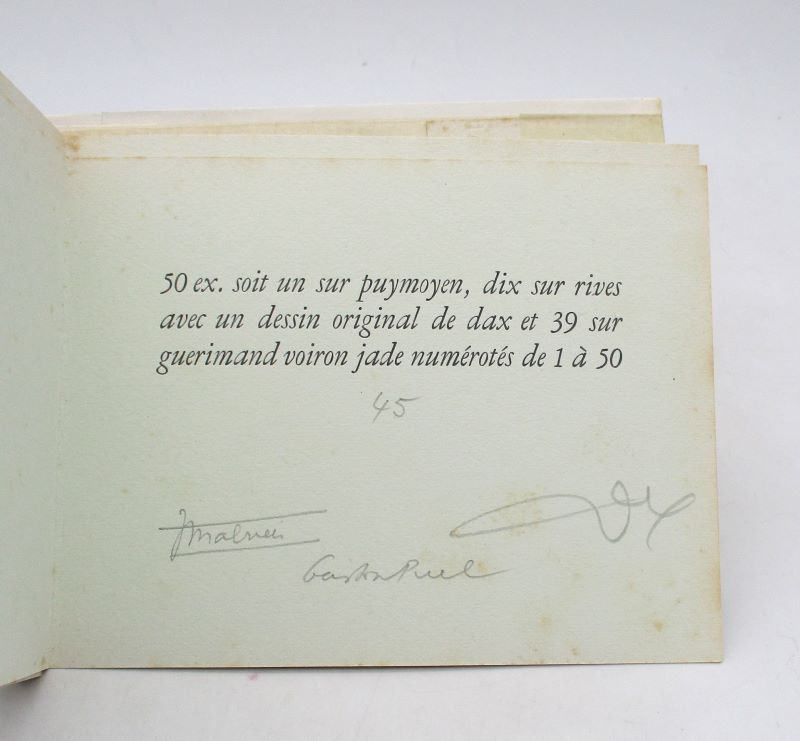 50 ex. soit un sur puymoyen, dix sur rives
avec un dessin original de dax et 39 sur
guerimand voiron jade numérotés de 1 à 50
45
Gaston Puel